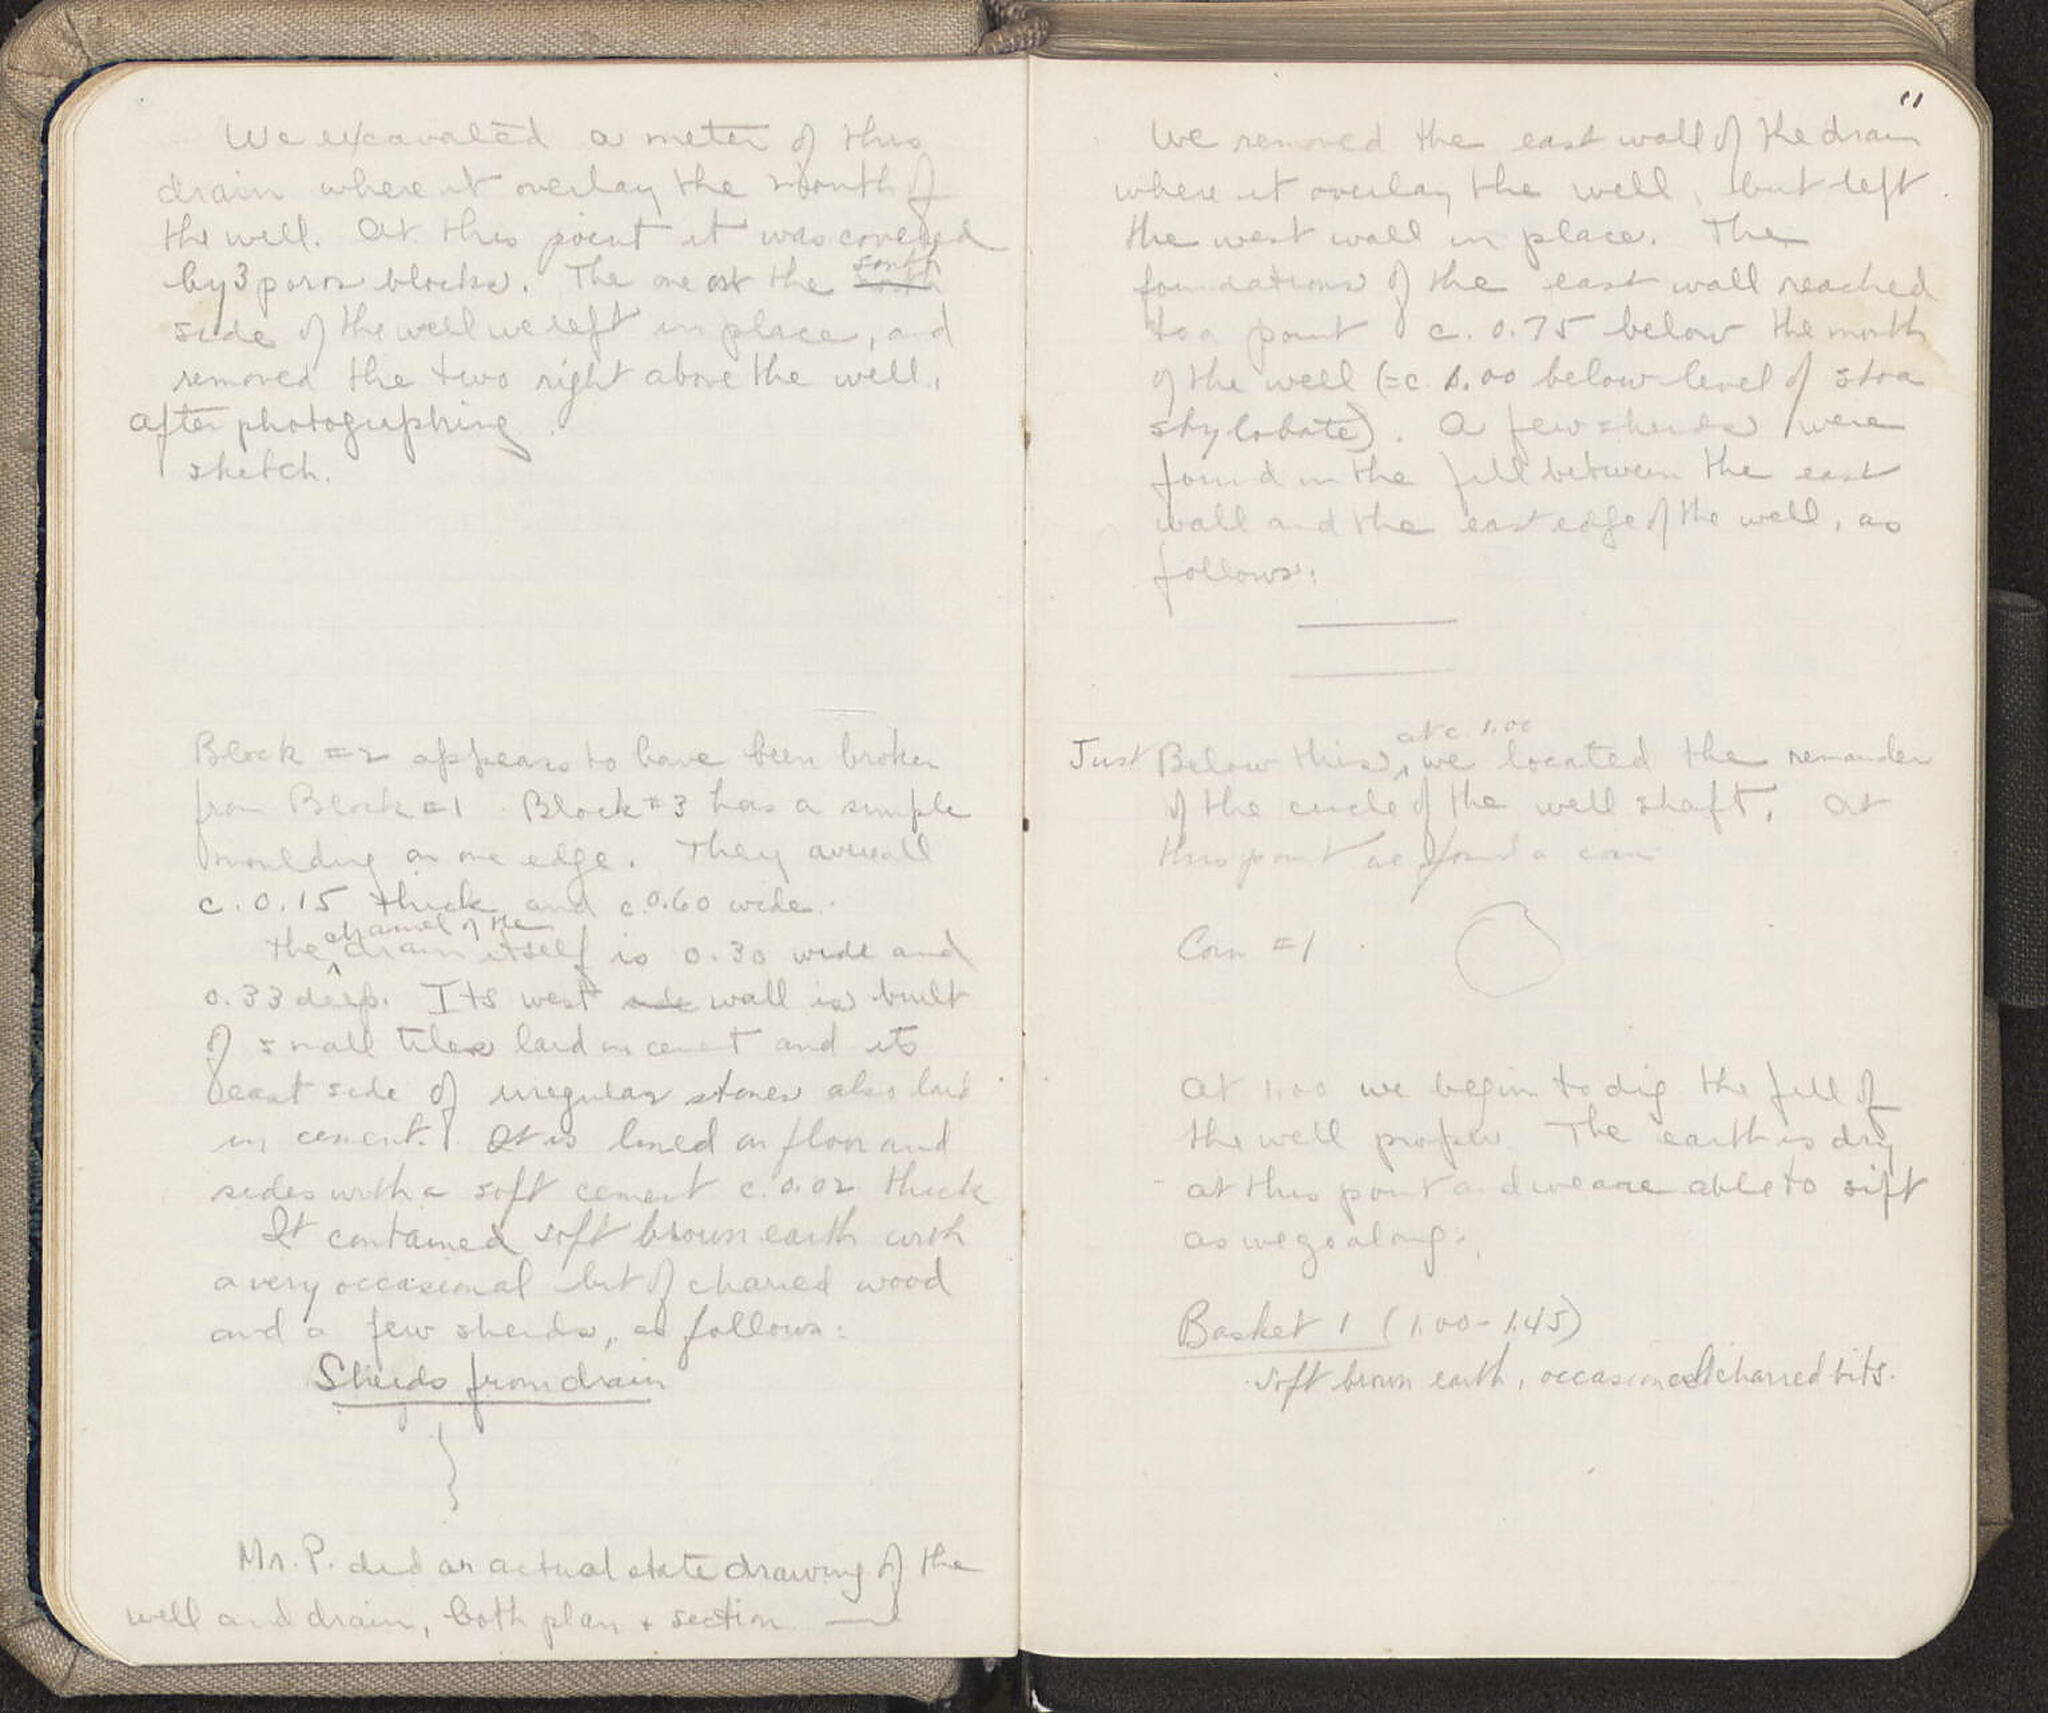 We excavated a meter of this
drain where it overlay the mouth of
the well. At this point it was covered
by 3 poros blocks. The one at the south
side of the well we left in place, and
removed the two right above the well,
after photographing.
sketch.
Block #2 appears to have been broken
from Block #1. Block #3 has a simple
moulding on one edge. They are all
c. 0.15 thick and c. 0.60 wide.
The channel of the drain itself is 0.30 wide and
0.33 deep. Its west wall is built
of small tiles laid in cement and its
east side of irregular stones also laid
in cement. It is lined on floor and
sides with a soft cement c. 0.02 thick
It contained soft brown earth with
a very occasional bit of charred wood
and a few sherds, as follows:
Sherds from drain
Mr. P. did an actual state drawing of the
well and drain, both plan + section
11
We removed the east wall of the drain
where it overlay the well, but left
the west wall in place. The
foundations of the east wall reached
to a point c. 0.75 below the mouth
of the well (=c. 1.00 below level of stoa
stylobate). A few sherds were
found in the fill between the east
wall and the east edge of the well, as
follows:
Just Below this, at c. 1.00 we located the remainder
of the circle of the well shaft. At
this point we found a coin
Coin #1
At 1.00 we begin to dig the fill of
the well proper. The earth is dry
at this point and we are able to sift
as we go along.
Basket 1 (1.00 - 1.45)
soft brown earth, occasional charred bits.